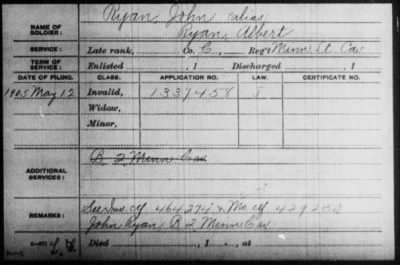 Ryan, John alias
NAME OF SOLDIER: Ryan, Albert
SERVICE: Late rank, Co. C, Reg't Minn St. Cav
TERM OF SERVICE: Enlisted , 1 Discharged , 1
DATE OF FILING. CLASS. APPLICATION NO. LAW. CERTIFICATE NO.
1905 May 12 Invalid, 1337458
Widow,
Minor,
ADDITIONAL SERVICES: B 2 Minn Cav
REMARKS: See Inv. cf 464274 & Mo. cf
John Ryan B 2 Minn Cav
Died , 1 , at